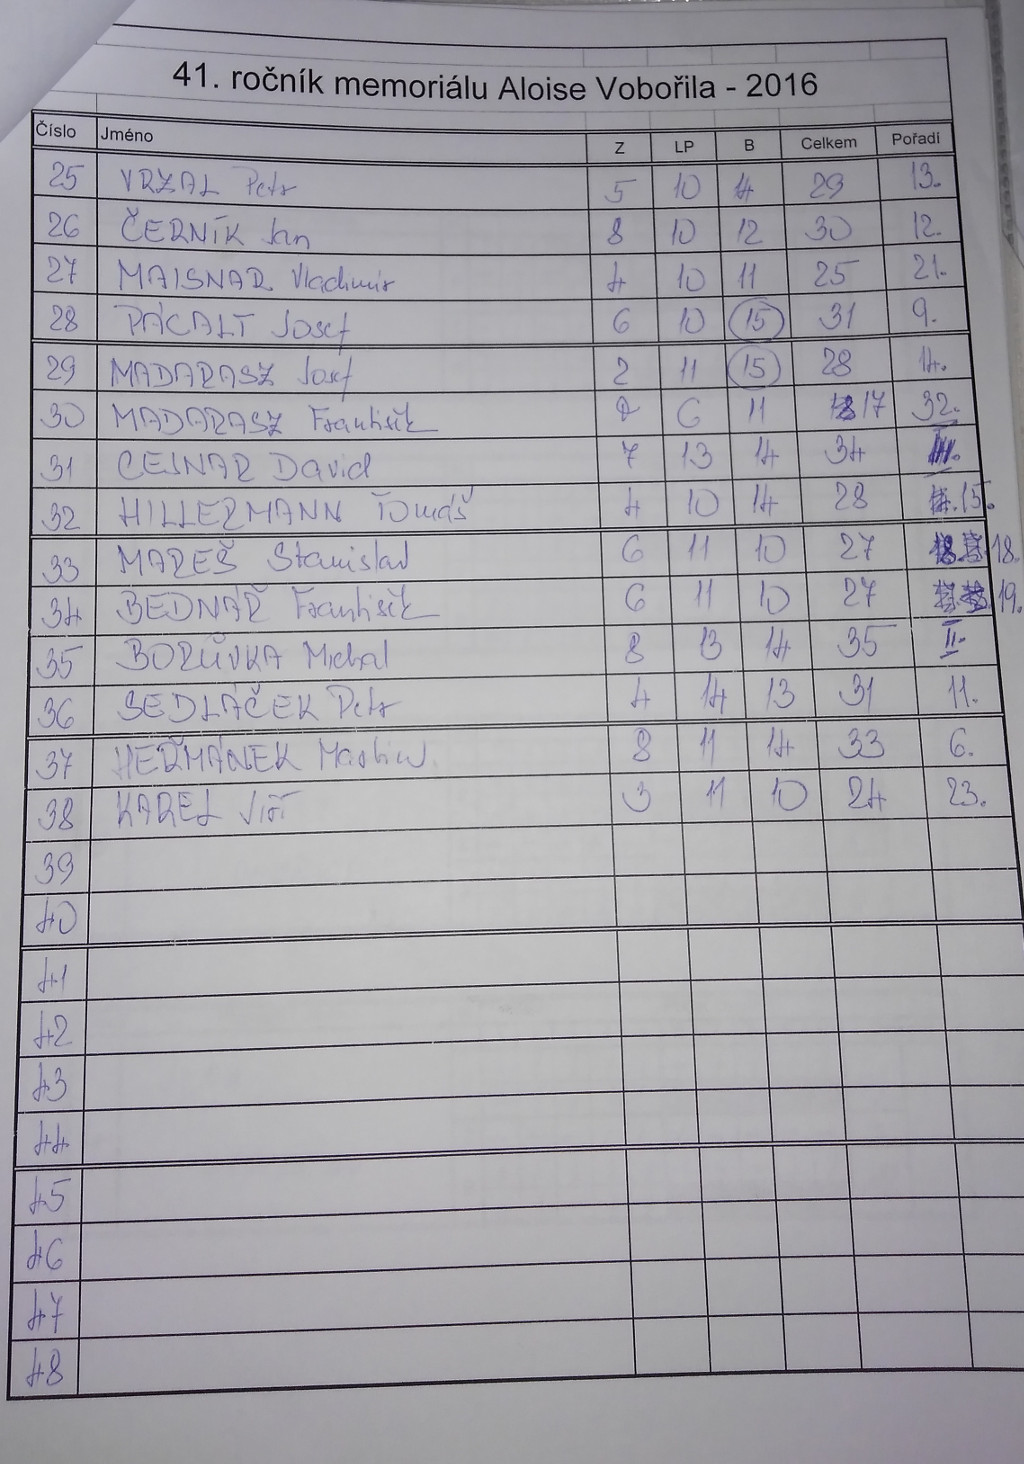 41. ročník memoriálu Aloise Vobořila - 2016
Číslo Jméno Z LP B Celkem Pořadí
25 VRZAL Petr 5 10 14 29 13.
26 ČERNÍK Jan 8 10 12 30 12.
27 MAISNAR Vladimír 4 10 11 25 21.
28 PÁCALT Josef 6 10 15 31 9.
29 MADARASZ Josef 2 11 15 28 14.
30 MADARASZ František 6 11 17 32.
31 CEJNAR David 7 13 14 34 III.
32 HILLERMANN Tomáš 4 10 14 28 15.
33 MAREŠ Stanislav 6 11 10 27 18.
34 BEDNAŘ František 6 11 10 27 19.
35 BORŮVKA Michal 8 13 14 35 II.
36 SEDLÁČEK Petr 4 14 13 31 11.
37 HEŘMÁNEK Martin 8 11 14 33 6.
38 KAREL Jiří 3 11 10 24 23.
39
40
41
42
43
44
45
46
47
48